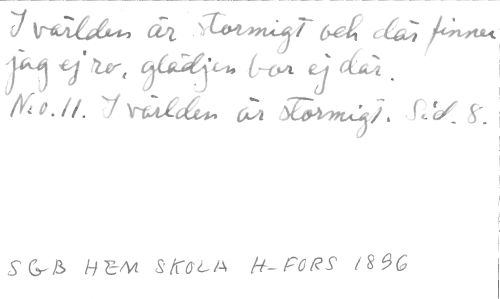 I världen är stormigt och där finner
jag ej ro, glädjen bor ej där.
N:o. 11. I världen är stormigt. Sid. 8.
SGB HEM SKOLA H-FORS 1896